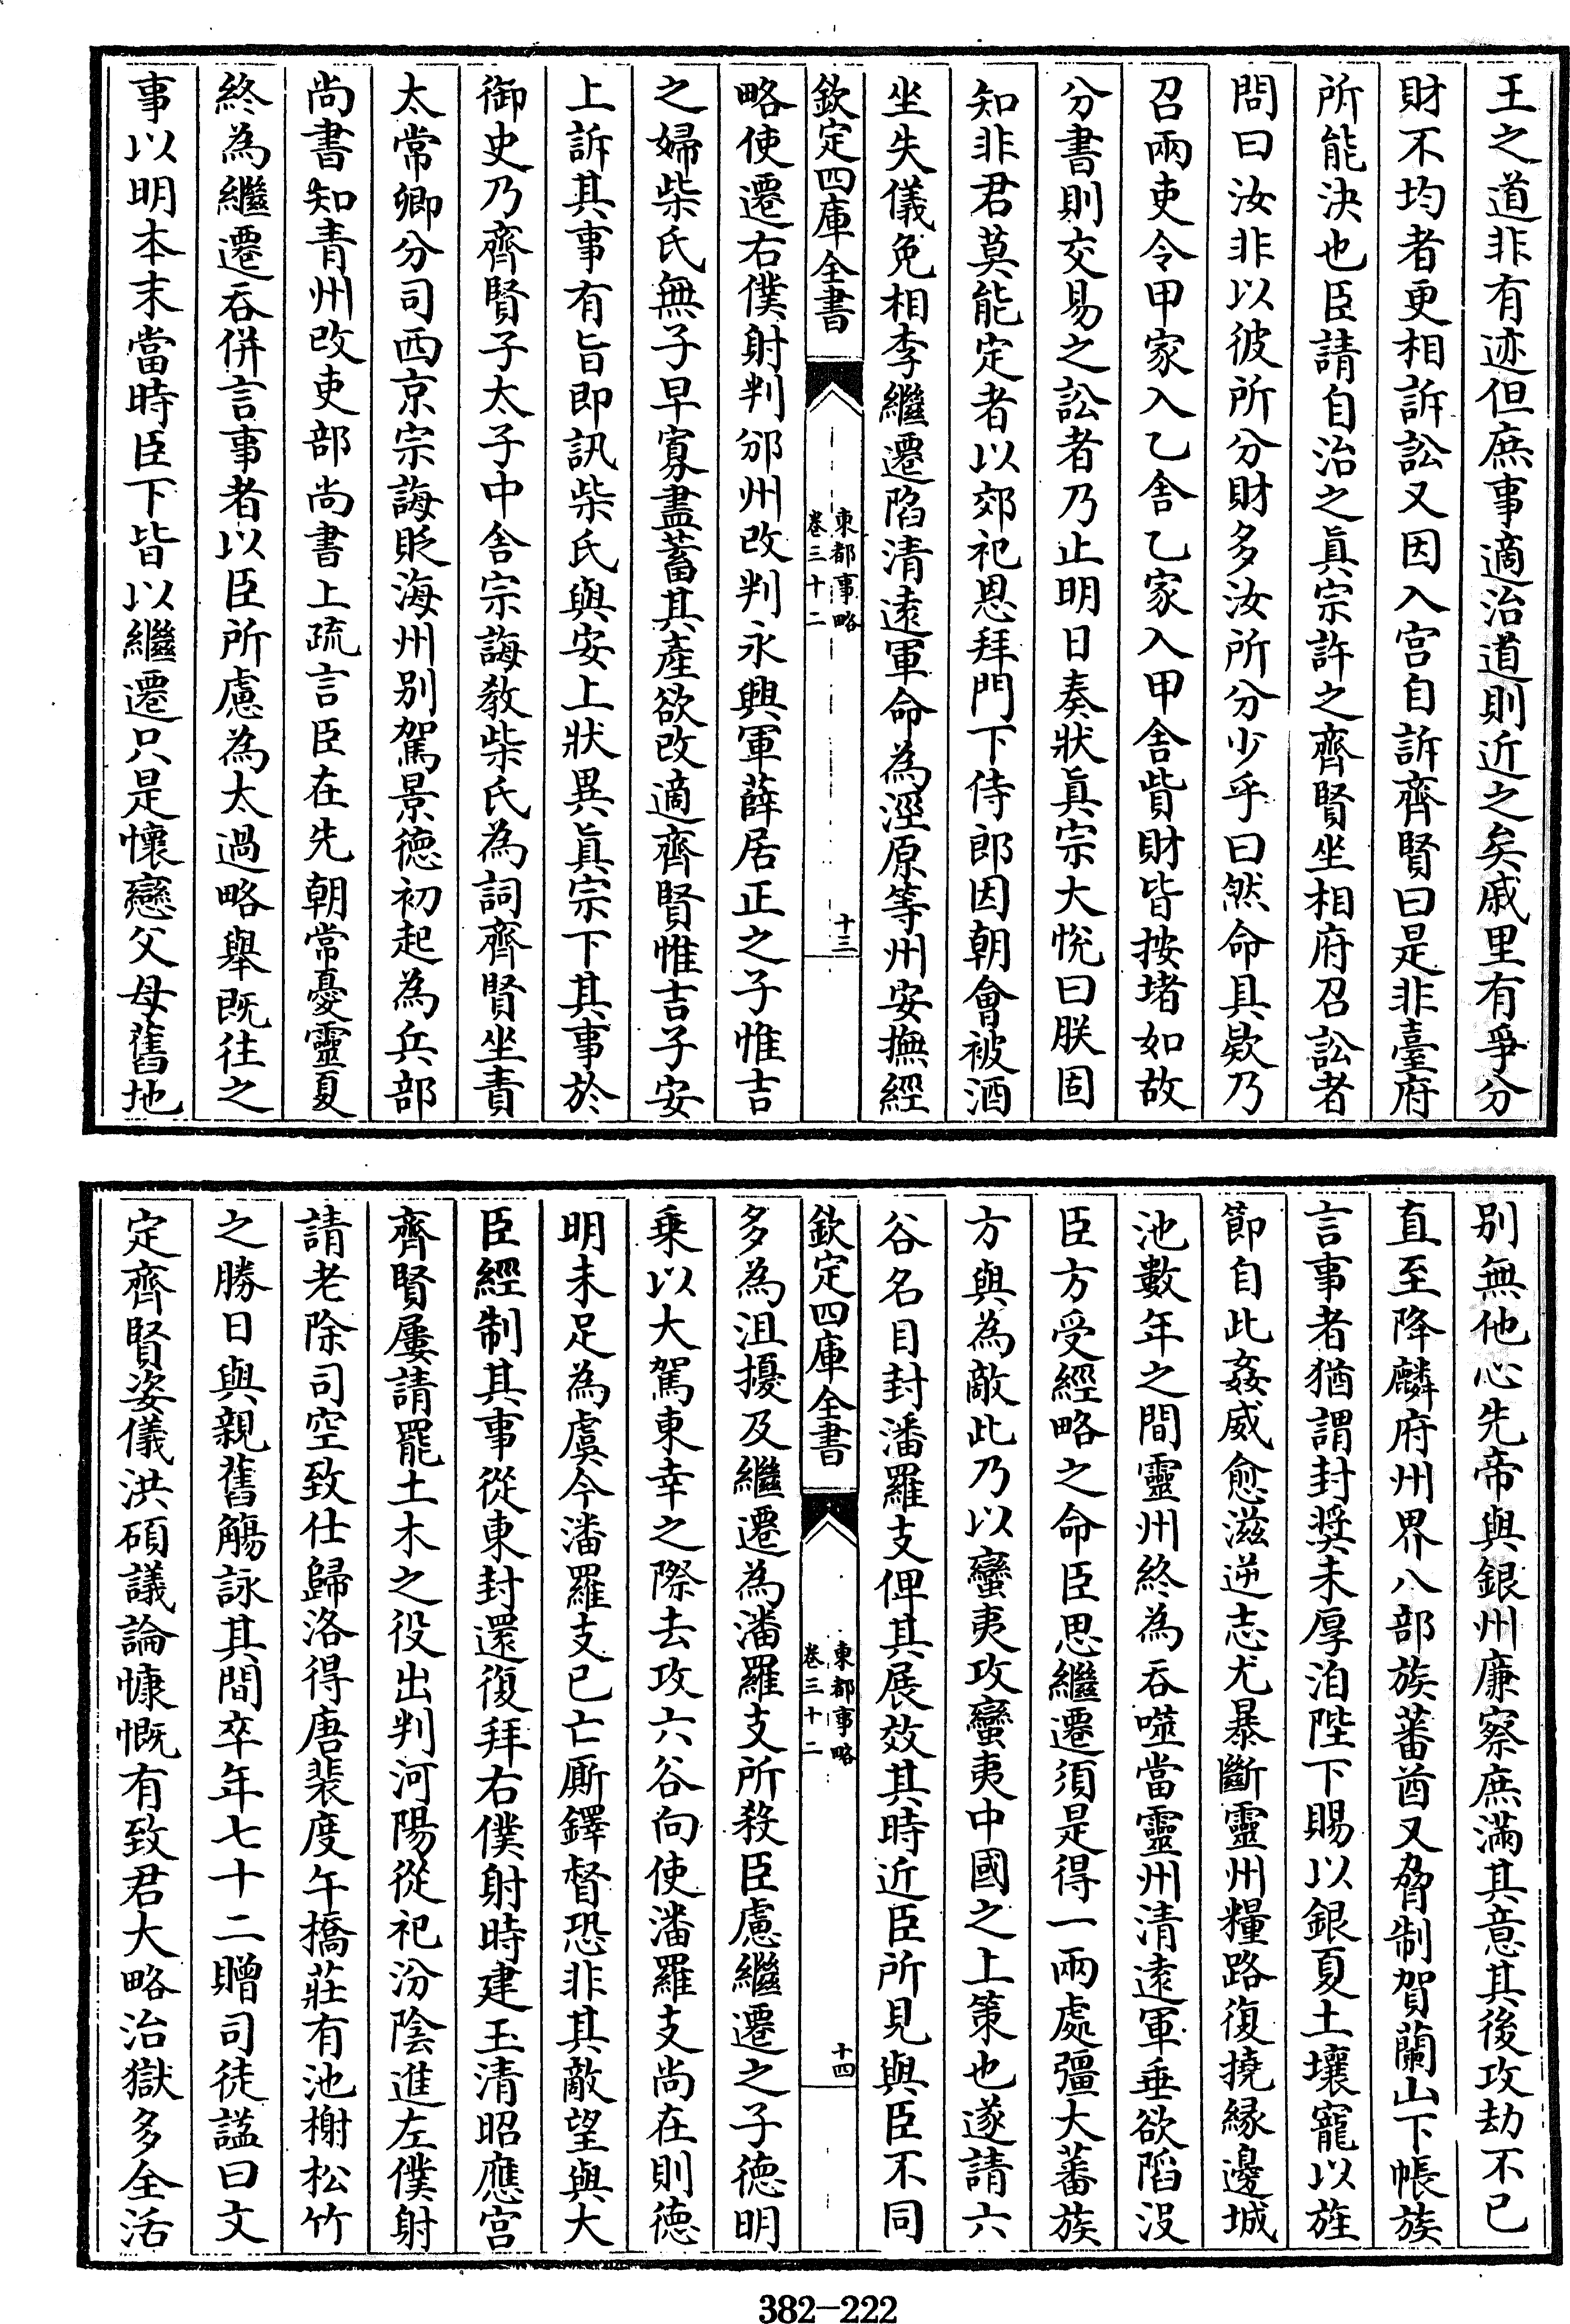 王之道非有迹但庶事適治道則近之矣戚里有爭分
財不均者更相訴訟又因入宫自訴齊賢曰是非臺府
所能決也臣請自治之真宗許之齊賢坐相府召訟者
問曰汝非以彼所分財多汝所分少乎曰然命具欵乃
召兩吏令甲家入乙舍乙家入甲舍貲財皆按堵如故
分書則交易之訟者乃止明日奏狀真宗大悅曰朕固
知非君莫能定者以郊祀恩拜門下侍郎因朝會被酒
坐失儀免相李繼遷陷清遠軍命為涇原等州安撫經
欽定四庫全書
東都事略
卷三十二
十三
略使遷右僕射判邠州改判永興軍薛居正之子惟吉
之婦柴氏無子早寡盡蓄其產欲改適齊賢惟吉子安
上訴其事有旨即訊柴氏與安上狀異真宗下其事於
御史乃齊賢子太子中舍宗誨教柴氏為詞齊賢坐責
太常卿分司西京宗誨貶海州别駕景德初起為兵部
尚書知青州改吏部尚書上疏言臣在先朝常憂靈夏
終為繼遷吞併言事者以臣所慮為太過略舉既往之
事以明本末當時臣下皆以繼遷只是懷戀父母舊地
别無他心先帝與銀州廉察庶滿其意其後攻劫不已
直至降麟府州界八部族蕃酋又脅制賀蘭山下帳族
言事者猶謂封奬未厚洎陛下賜以銀夏土壤寵以旌
節自此姦威愈滋逆志尤暴斷靈州糧路復撓緣邊城
池數年之間靈州終為吞噬當靈州清遠軍垂欲陷没
臣方受經略之命臣思繼遷須是得一兩處彊大蕃族
方與為敵此乃以蠻夷攻蠻夷中國之上策也遂請六
谷名目封潘羅支俾其展效其時近臣所見與臣不同
欽定四庫全書
東都事略
卷三十二
十四
多為沮擾及繼遷為潘羅支所殺臣慮繼遷之子德明
乗以大駕東幸之際去攻六谷向使潘羅支尚在則德
明未足為虞今潘羅支已亡厮鐸督恐非其敵望與大
臣經制其事從東封還復拜右僕射時建玉清昭應宫
齊賢屢請罷土木之役出判河陽從祀汾陰進左僕射
請老除司空致仕歸洛得唐裴度午橋莊有池榭松竹
之勝日與親舊觴詠其間卒年七十二贈司徒諡曰文
定齊賢姿儀洪碩議論慷慨有致君大略治獄多全活
382-222